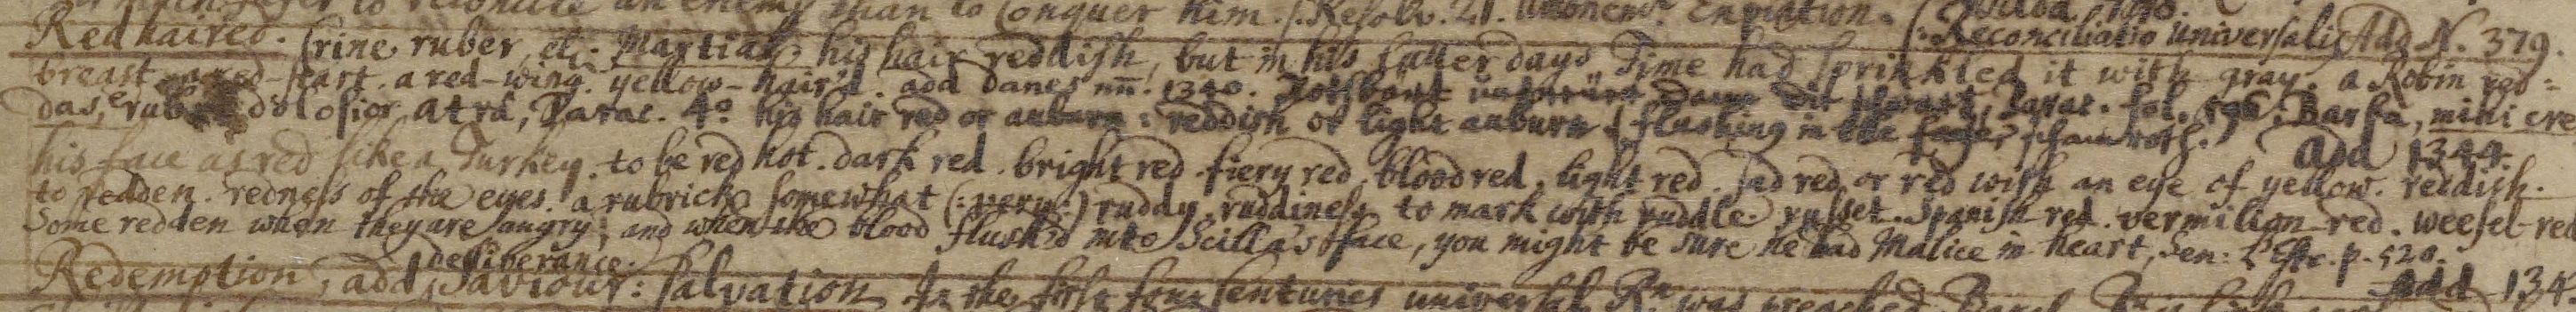 to reconcile an enemy than to Conquer him. /: Resolv. 21.
(: Reconciliatio universalis Add N. 379.
Redhaired. Crine ruber, etc. Martial his hair reddish, but in his latter days Time had sprinkled it with gray. a Robin red=
breast. a red-start. a red-wing. yellow-hair'd. add Danes nn. 1340.
das, dolosior atra, Parac. 4° his hair red or auburn: reddish or light auburn (flushing in the Parac. fol. Barba, mihi cre
his face as red like a Turkey. to be red hot. dark red. bright red. fiery red. blood red. light red. sad red or red with an eye of yellow. reddish. Add 1344.
to redden. redness of the eyes. a rubrick somewhat (: very :) ruddy. ruddiness to mark with ruddle. russet. Spanish-red. vermilion-red. weesel-red
Some redden when they are angry; and when the blood flush'd into Scilla's face, you might be sure he had Malice in heart, Sen: L'Estr. p. 520.
deliverance.
Redemption, add Saviour: Salvation In the first four Centuries universal Rn. was preached Add 134